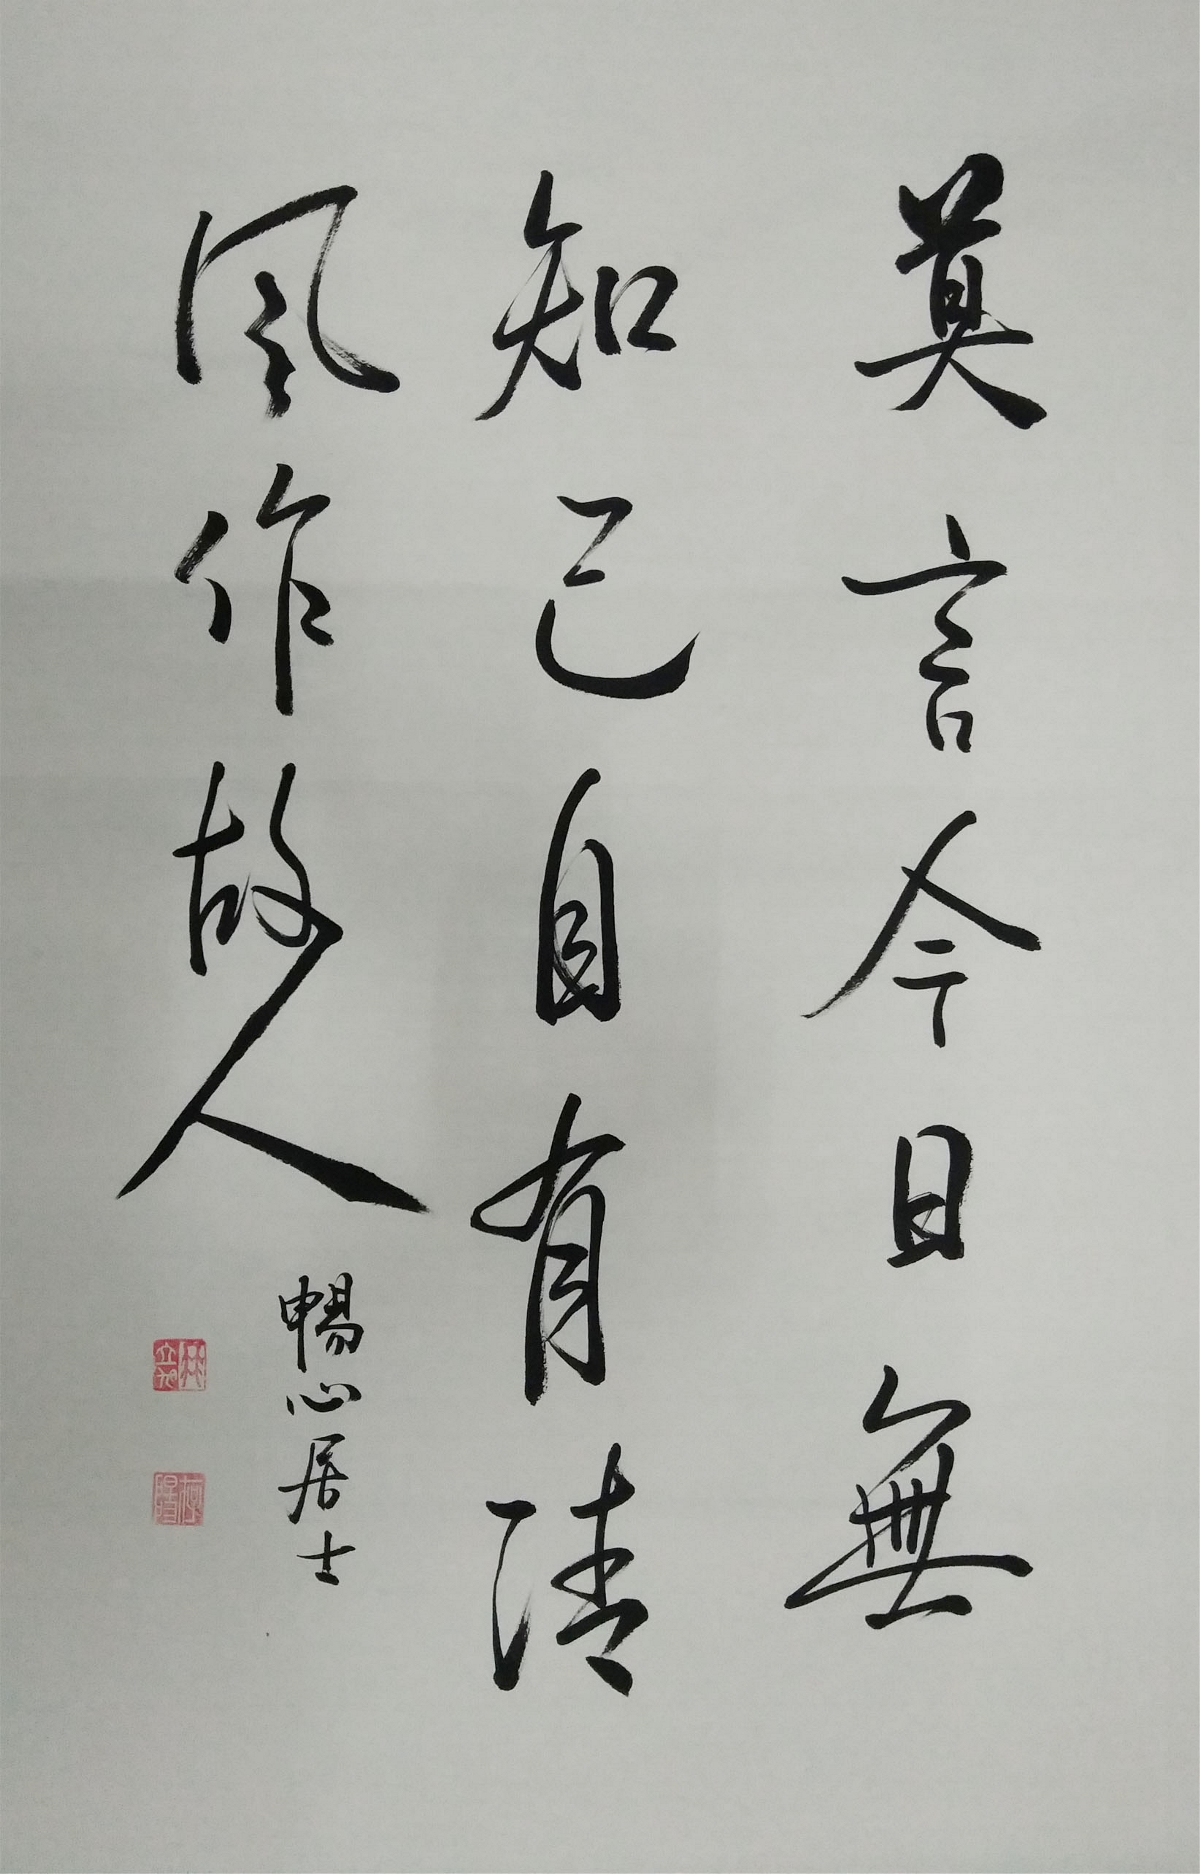 莫言今日無
知己自有清
風作故人
暢心居士